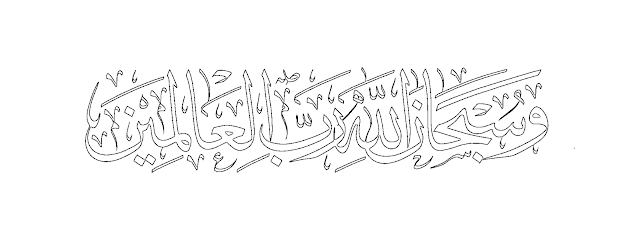 وسبحان الله رب العالمين